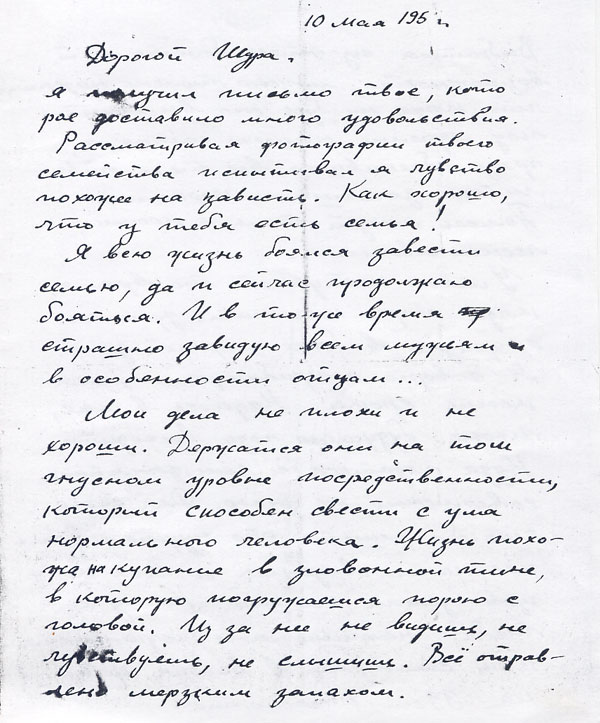 10 мая 195 г.
Дорогой Шура.
я получил письмо твое, кото
рое доставило много удовольствия.
Рассматривая фотографии твоего
семейства испытывал я чувство
похожее на зависть. Как хорошо,
что у тебя есть семья!
Я всю жизнь боялся завести
семью, да и сейчас продолжаю
бояться. И в то же время
страшно завидую всем мужьям и
в особенности отцам...
Мои дела не плохи и не
хороши. Держатся они на том
гнусном уровне посредственности,
который способен свести с ума
нормального человека. Жизнь похо-
жа на купание в зловонной тине,
в которую погружаешся порою с
головой. Из за нее не видишь, не
чувствуешь, не слышишь. Всё отрав-
лено мерзким запахом.